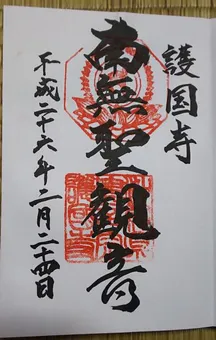 護国寺
南無聖観音
平成二十六年二月二十四日